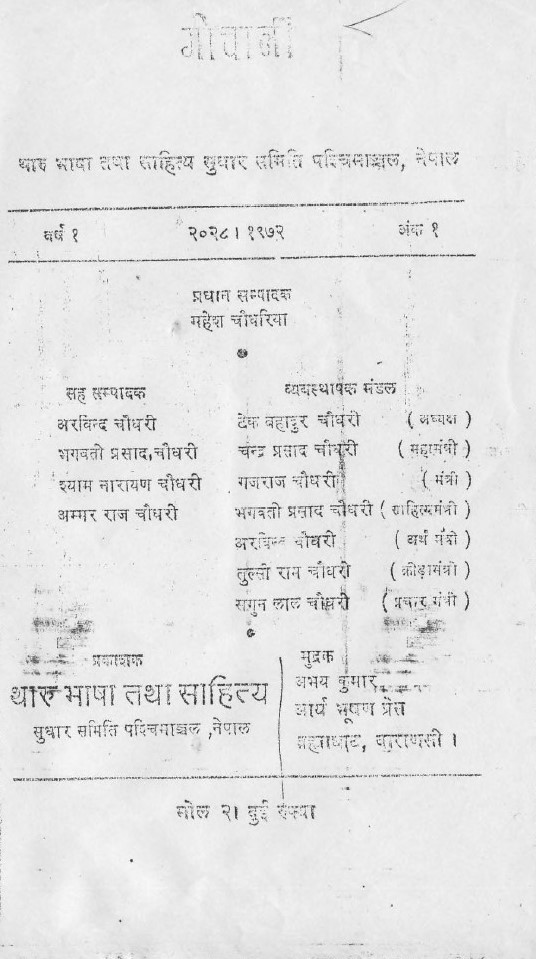 गोचाली
थारु भाषा तथा साहित्य सुधार समिति पश्चिमाञ्चल, नेपाल
वर्ष १ २०२८। १९७२ अंक १
प्रधान सम्पादक
महेश चौधरिया
सह सम्पादक
अरविन्द चौधरी
भगवती प्रसाद,चौधरी
श्याम नारायण चौधरी
अम्मर राज चौधरी
व्यबस्थापक मंडल
टेक बहादुर चौधरी ( अध्यक्ष )
चन्द्र प्रसाद चौधरी ( महामंत्री )
गजराज चौधरी ( मंत्री )
भगवती प्रसाद चौधरी ( साहित्यमंत्री )
अरविन्द चौधरी ( अर्थ मंत्री )
तुल्सी राम चौधरी ( क्रीडामंत्री )
सगुन लाल चौधरी ( प्रचार मंत्री )
प्रकाशक
थारु भाषा तथा साहित्य
सुधार समिति पश्चिमाञ्चल ,नेपाल
मुद्रक
अभय कुमार
आर्य भूषण प्रेस
ब्रह्माघाट, वाराणसी ।
मोल २। दुई रुप्या